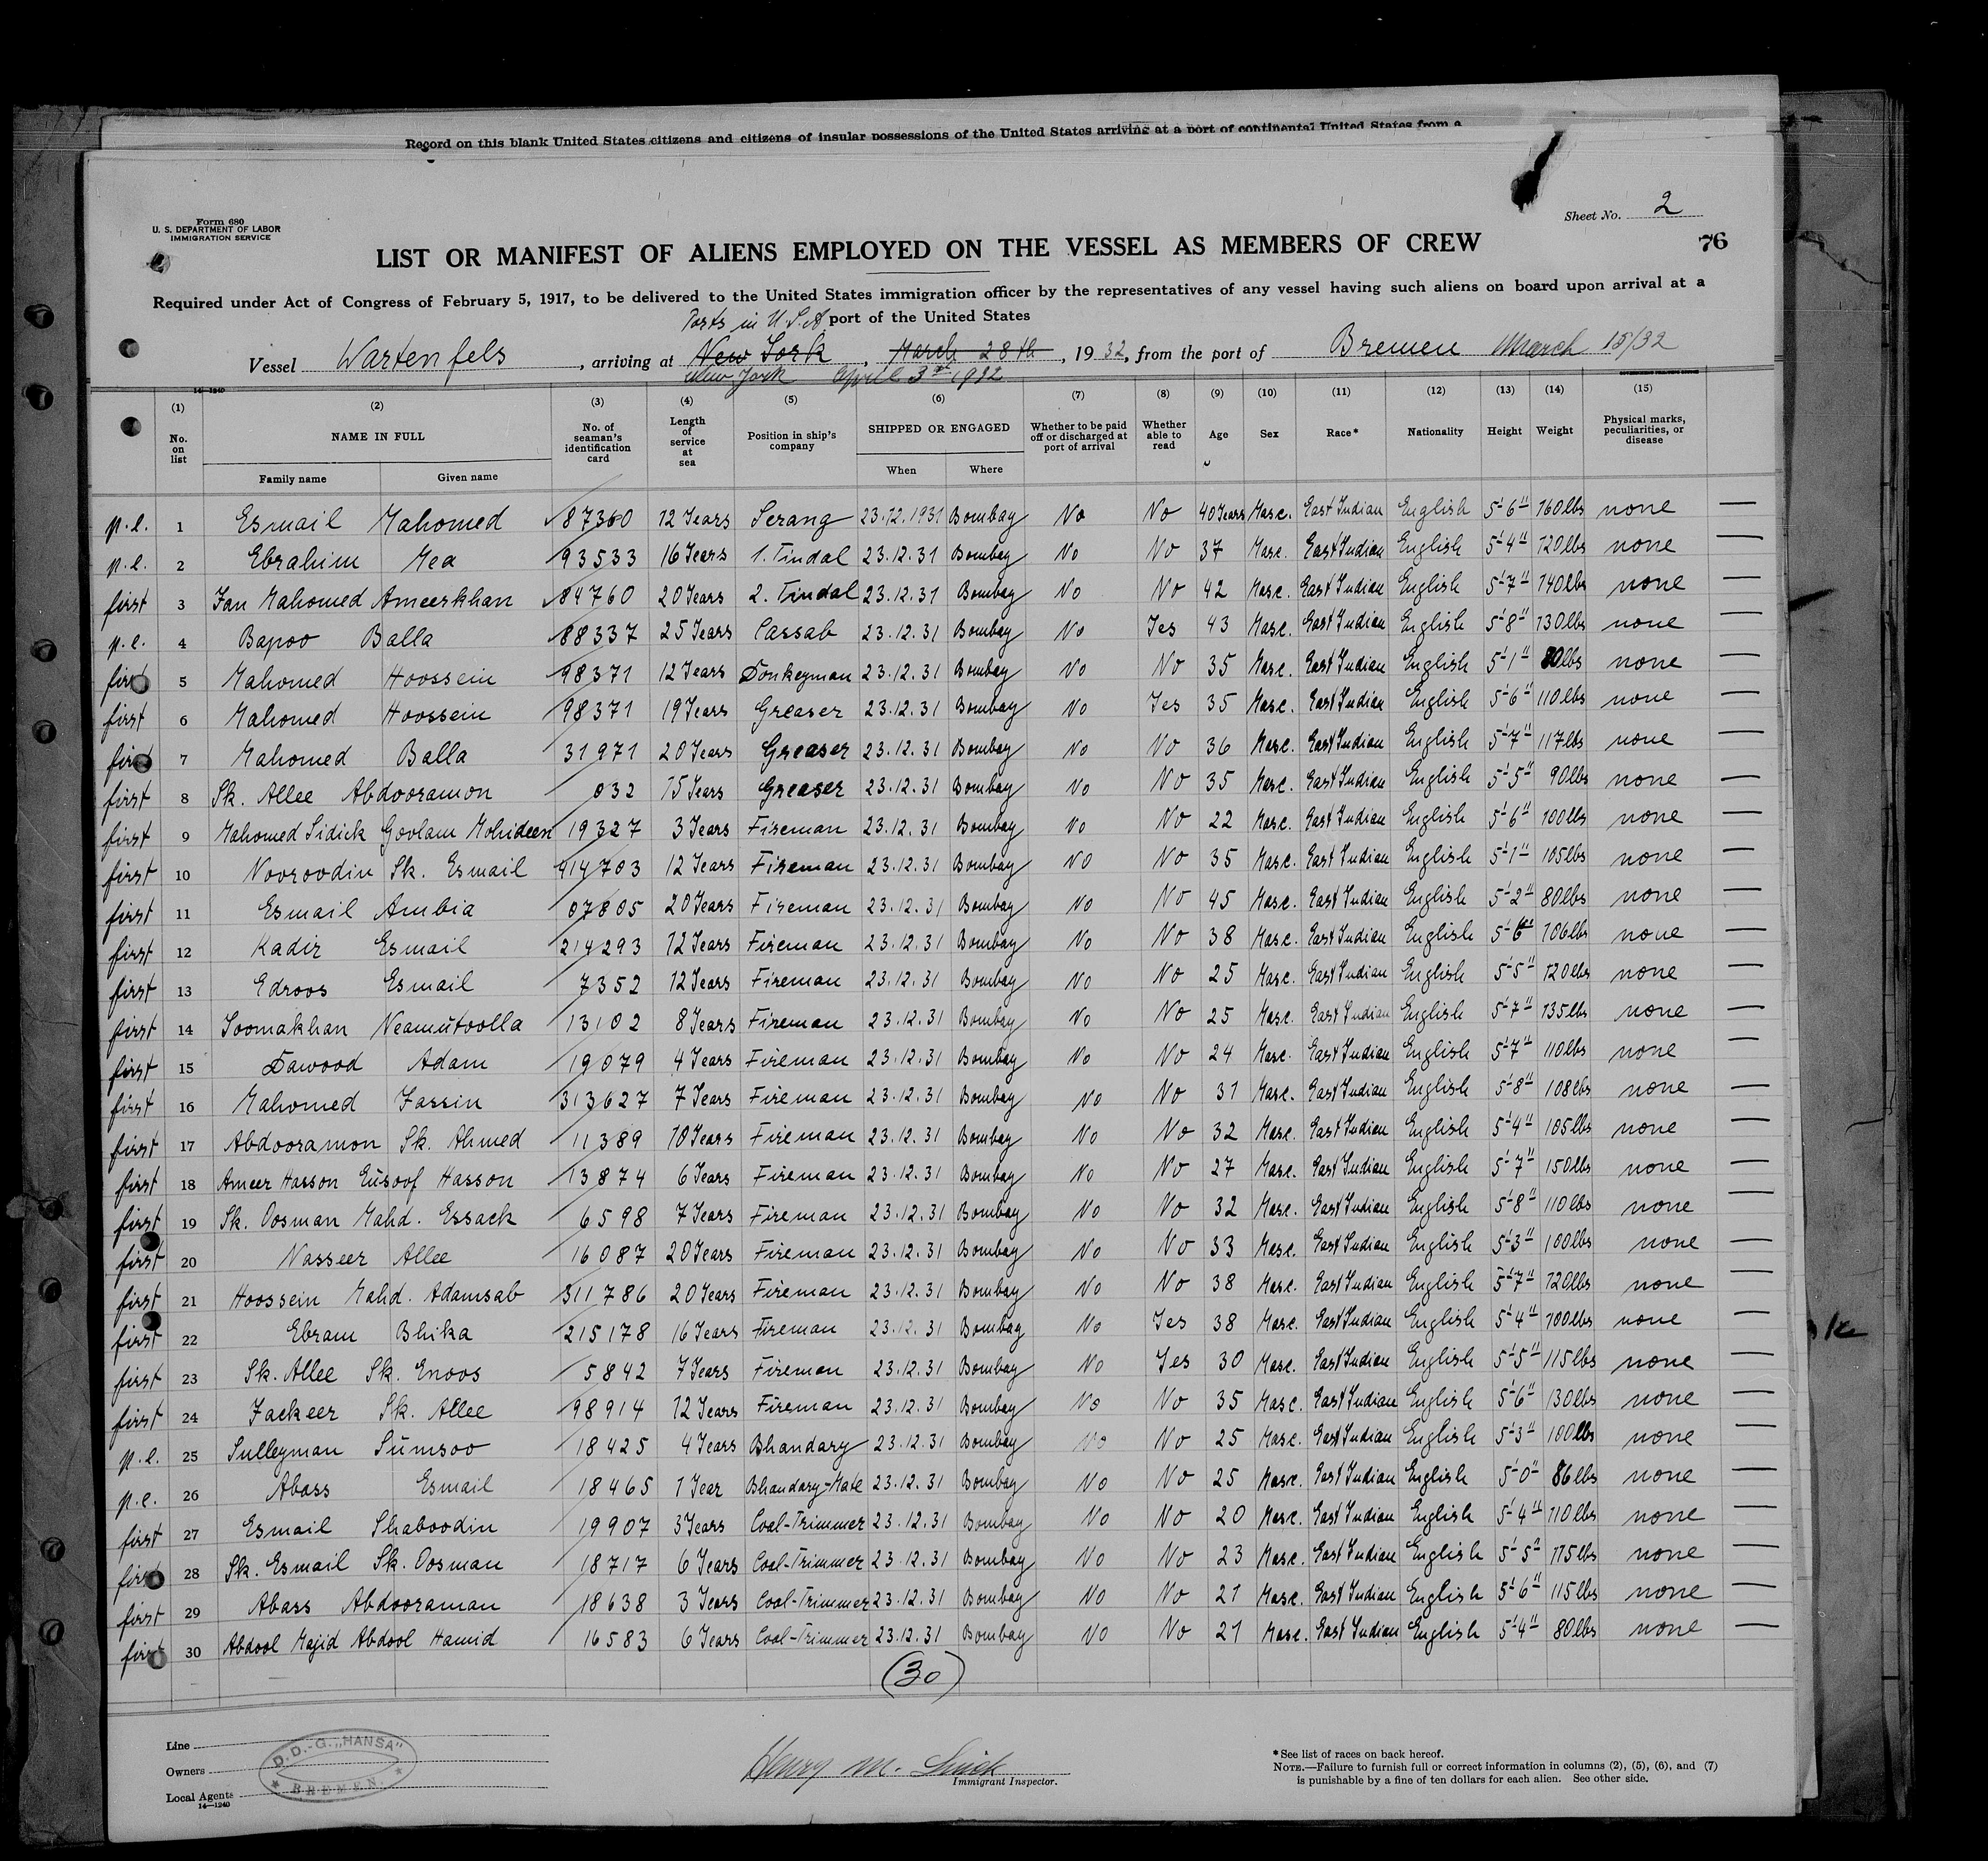 Record on this blank United States citizens and citizens of insular possessions of the United States arriving at a port of continental United States from a
Form 680
U. S. DEPARTMENT OF LABOR
IMMIGRATION SERVICE
Sheet No. 2
LIST OR MANIFEST OF ALIENS EMPLOYED ON THE VESSEL AS MEMBERS OF CREW
76
Required under Act of Congress of February 5, 1917, to be delivered to the United States immigration officer by the representatives of any vessel having such aliens on board upon arrival at a
Ports in U.S.A. port of the United States
Vessel Wartenfels, arriving at New York, March 28th, 1932, from the port of Bremen March 15/32
New York April 3rd 1932
14—1240
(1) (2) (3) (4) (5) (6) (7) (8) (9) (10) (11) (12) (13) (14) (15)
No. on list NAME IN FULL No. of seaman's identification card Length of service at sea Position in ship's company SHIPPED OR ENGAGED Whether to be paid off or discharged at port of arrival Whether able to read Age Sex Race* Nationality Height Weight Physical marks, peculiarities, or disease
Family name Given name When Where
p.l. 1 Esmail Mahomed 87360 12 Years Serang 23.12.1931 Bombay No No 40 Years Masc. East Indian English 5'-6" 160 lbs none —
p.l. 2 Ebrahim Mea 93533 16 Years 1. Tindal 23.12.31 Bombay No No 37 Masc. East Indian English 5'-4" 120 lbs none —
first 3 Jan Mahomed Ameerkhan 84760 20 Years 2. Tindal 23.12.31 Bombay No No 42 Masc. East Indian English 5'-7" 140 lbs none —
p.l. 4 Bapoo Balla 88337 25 Years Cassab 23.12.31 Bombay No Yes 43 Masc. East Indian English 5'-8" 130 lbs none —
first 5 Mahomed Hoossein 98371 12 Years Donkeyman 23.12.31 Bombay No No 35 Masc. East Indian English 5'-1" 80 lbs none —
first 6 Mahomed Hoossein 98371 19 Years Greaser 23.12.31 Bombay No Yes 35 Masc. East Indian English 5'-6" 110 lbs none —
first 7 Mahomed Balla 31971 20 Years Greaser 23.12.31 Bombay No No 36 Masc. East Indian English 5'-7" 117 lbs none —
first 8 Sk. Allee Abdooramon 032 15 Years Greaser 23.12.31 Bombay No No 35 Masc. East Indian English 5'-5" 90 lbs none —
first 9 Mahomed Sidick Goolam Mohideen 19327 3 Years Fireman 23.12.31 Bombay No No 22 Masc. East Indian English 5'-6" 100 lbs none —
first 10 Nooroodin Sk. Esmail 414703 12 Years Fireman 23.12.31 Bombay No No 35 Masc. East Indian English 5'-1" 105 lbs none —
first 11 Esmail Ambia 07805 20 Years Fireman 23.12.31 Bombay No No 45 Masc. East Indian English 5'-2" 80 lbs none —
first 12 Kadir Esmail 214293 12 Years Fireman 23.12.31 Bombay No No 38 Masc. East Indian English 5'-6" 106 lbs none —
first 13 Edroos Esmail 7352 12 Years Fireman 23.12.31 Bombay No No 25 Masc. East Indian English 5'-5" 120 lbs none —
first 14 Joomakhan Neamutoolla 13102 8 Years Fireman 23.12.31 Bombay No No 25 Masc. East Indian English 5'-7" 135 lbs none —
first 15 Dawood Adam 19079 4 Years Fireman 23.12.31 Bombay No No 24 Masc. East Indian English 5'-7" 110 lbs none —
first 16 Mahomed Jassin 313627 7 Years Fireman 23.12.31 Bombay No No 31 Masc. East Indian English 5'-8" 108 lbs none —
first 17 Abdooramon Sk. Ahmed 11389 10 Years Fireman 23.12.31 Bombay No No 32 Masc. East Indian English 5'-4" 105 lbs none —
first 18 Ameer Hasson Eusoof Hasson 13874 6 Years Fireman 23.12.31 Bombay No No 27 Masc. East Indian English 5'-7" 150 lbs none —
first 19 Sk. Oosman Mahd. Essack 6598 7 Years Fireman 23.12.31 Bombay No No 32 Masc. East Indian English 5'-8" 110 lbs none —
first 20 Nasseer Allee 16087 20 Years Fireman 23.12.31 Bombay No No 33 Masc. East Indian English 5'-3" 100 lbs none —
first 21 Hoossein Mahd. Adamsab 311786 20 Years Fireman 23.12.31 Bombay No No 38 Masc. East Indian English 5'-7" 120 lbs none —
first 22 Ebram Bhika 215178 16 Years Fireman 23.12.31 Bombay No Yes 38 Masc. East Indian English 5'-4" 100 lbs none —
first 23 Sk. Allee Sk. Enoos 5842 7 Years Fireman 23.12.31 Bombay No Yes 30 Masc. East Indian English 5'-5" 115 lbs none —
first 24 Fackeer Sk. Allee 98914 12 Years Fireman 23.12.31 Bombay No No 35 Masc. East Indian English 5'-6" 130 lbs none —
p.l. 25 Sulleyman Sumsoo 18425 4 Years Bhandary 23.12.31 Bombay No No 25 Masc. East Indian English 5'-3" 100 lbs none —
p.l. 26 Abass Esmail 18465 1 Year Bhandary-Mate 23.12.31 Bombay No No 25 Masc. East Indian English 5'-0" 86 lbs none —
first 27 Esmail Shaboodin 19907 3 Years Coal-Trimmer 23.12.31 Bombay No No 20 Masc. East Indian English 5'-4" 110 lbs none —
first 28 Sk. Esmail Sk. Oosman 18717 6 Years Coal-Trimmer 23.12.31 Bombay No No 23 Masc. East Indian English 5'-5" 115 lbs none —
first 29 Abass Abdooraman 18638 3 Years Coal-Trimmer 23.12.31 Bombay No No 21 Masc. East Indian English 5'-6" 115 lbs none —
first 30 Abdool Majid Abdool Hamid 16583 6 Years Coal-Trimmer 23.12.31 Bombay No No 21 Masc. East Indian English 5'-4" 80 lbs none —
(30)
Line
Owners
Local Agents
14—1240
D. D.-G. „HANSA"
* BREMEN. *
Henry M.
Immigrant Inspector.
*See list of races on back hereof.
NOTE.—Failure to furnish full or correct information in columns (2), (5), (6), and (7)
is punishable by a fine of ten dollars for each alien. See other side.